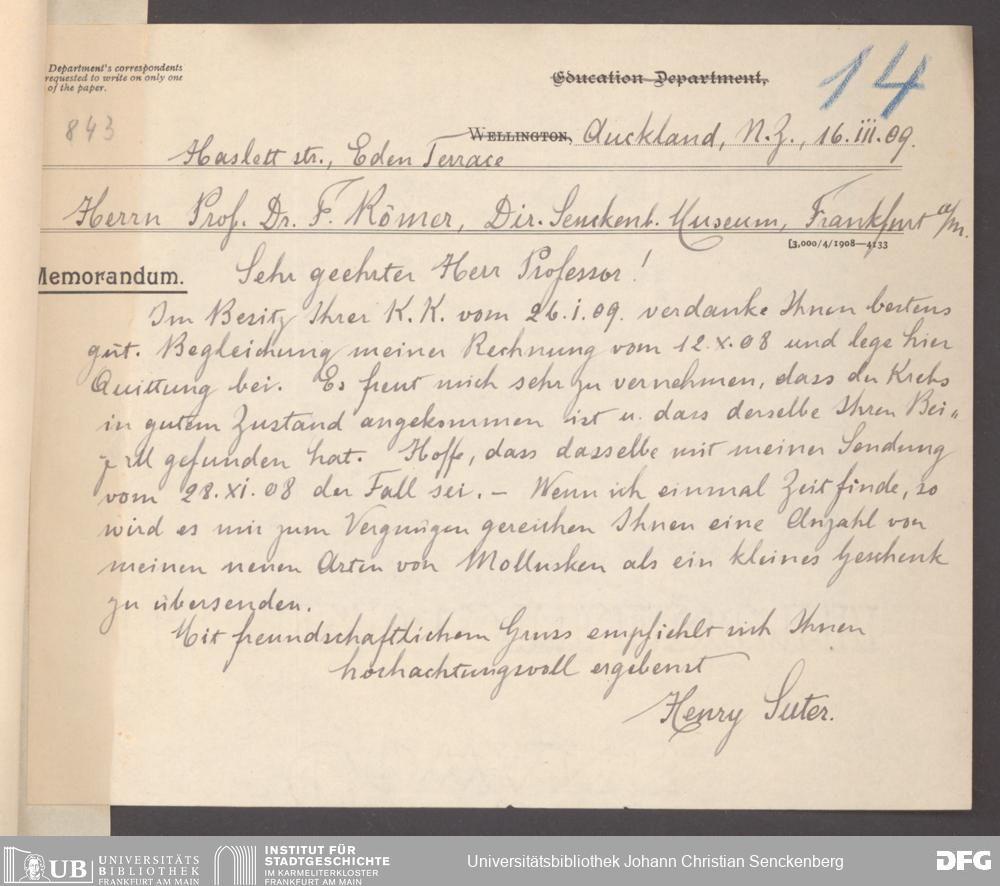 Department's correspondents
requested to write on only one
of the paper.
Education Department,
14
843
WELLINGTON, Auckland, N.Z., 16.iii.09.
Haslett str., Eden Terrace
Herrn Prof. Dr. F. Römer, Dir. Senckenb. Museum, Frankfurt a/m.
[3,000/4/1908—4133
Memorandum.
Sehr geehrter Herr Professor!
Im Besitz Ihrer K.K. vom 26.i.09. verdanke Ihnen bestens
gut. Begleichung meiner Rechnung vom 12.x.08 und lege hier
Quittung bei. Es freut mich sehr zu vernehmen, dass der Krebs
in gutem Zustand angekommen ist u. dass derselbe Ihren Bei„
fall gefunden hat. Hoffe, dass dasselbe mit meiner Sendung
vom 28.xi.08 der Fall sei. – Wenn ich einmal Zeit finde, so
wird es mir zum Vergnügen gereichen Ihnen eine Anzahl von
meinen neuen Arten von Mollusken als ein kleines Geschenk
zu übersenden.
Mit freundschaftlichem Gruss empfiehlt sich Ihnen
hochachtungsvoll ergebenst
Henry Suter.
UB UNIVERSITÄTS
BIBLIOTHEK
FRANKFURT AM MAIN
INSTITUT FÜR
STADTGESCHICHTE
IM KARMELITERKLOSTER
FRANKFURT AM MAIN
Universitätsbibliothek Johann Christian Senckenberg
DFG